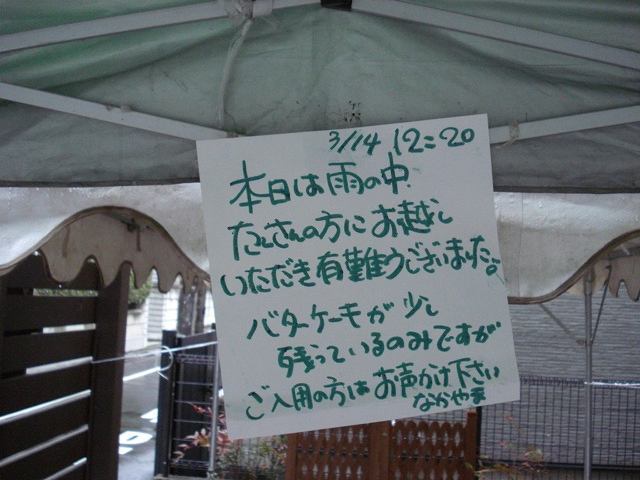 3/14 12:20
本日は雨の中
たくさんの方にお越し
いただき有難うございました。
バターケーキが少し
残っているのみですが
ご入用の方はお声かけ下さい
なかやま